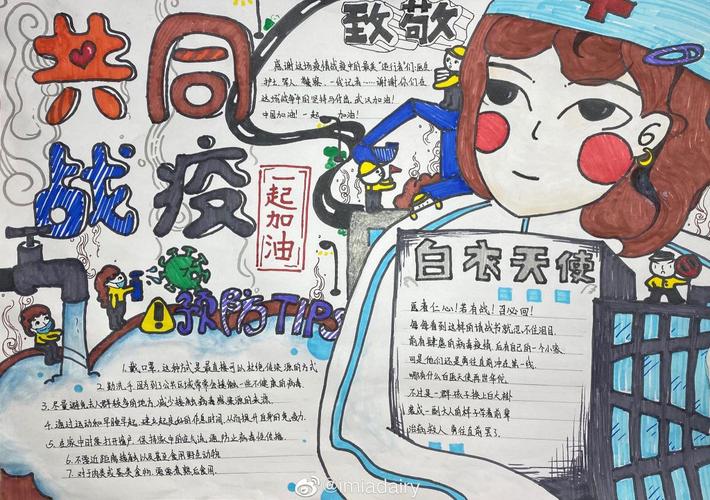 共同
战疫
一起加油
致敬
感谢这场疫情战疫中的最美"逆行者"们:医生
护士、军人、警察、一线记者……谢谢你们在
这场战争中的坚持与付出,武汉加油!
中国加油!一起 加油!
预防TIPS
1.戴口罩,这种方式是最直接可以杜绝传染源的方式
2.勤洗手,因为到公共区域常常会接触一些不健康的病毒.
3.尽量避免去人群较多的地方,减少接触病毒感染源的来源.
4.通过运动和早睡早起,建立起良好的作息时间,从而提升自身的免疫力.
5.在家中时常打开窗户,保持家中的空气流通,防止病毒传播.
6.不靠近距离接触以及食用野生动物
7.对于肉类或蛋类食物,需要煮熟后食用.
白衣天使
医者仁心!若有战!召必回!
每每看到这样的请战书就忍不住泪目.
前有肆虐的病毒疫情,后有自己的一个小家
可是他们还是勇往直前冲在第一线.
哪有什么白衣天使再世华佗
不过是一群孩子换上白大褂
一副大人的样子学着前辈
治病救人 勇往直前罢了.
@imiadairy